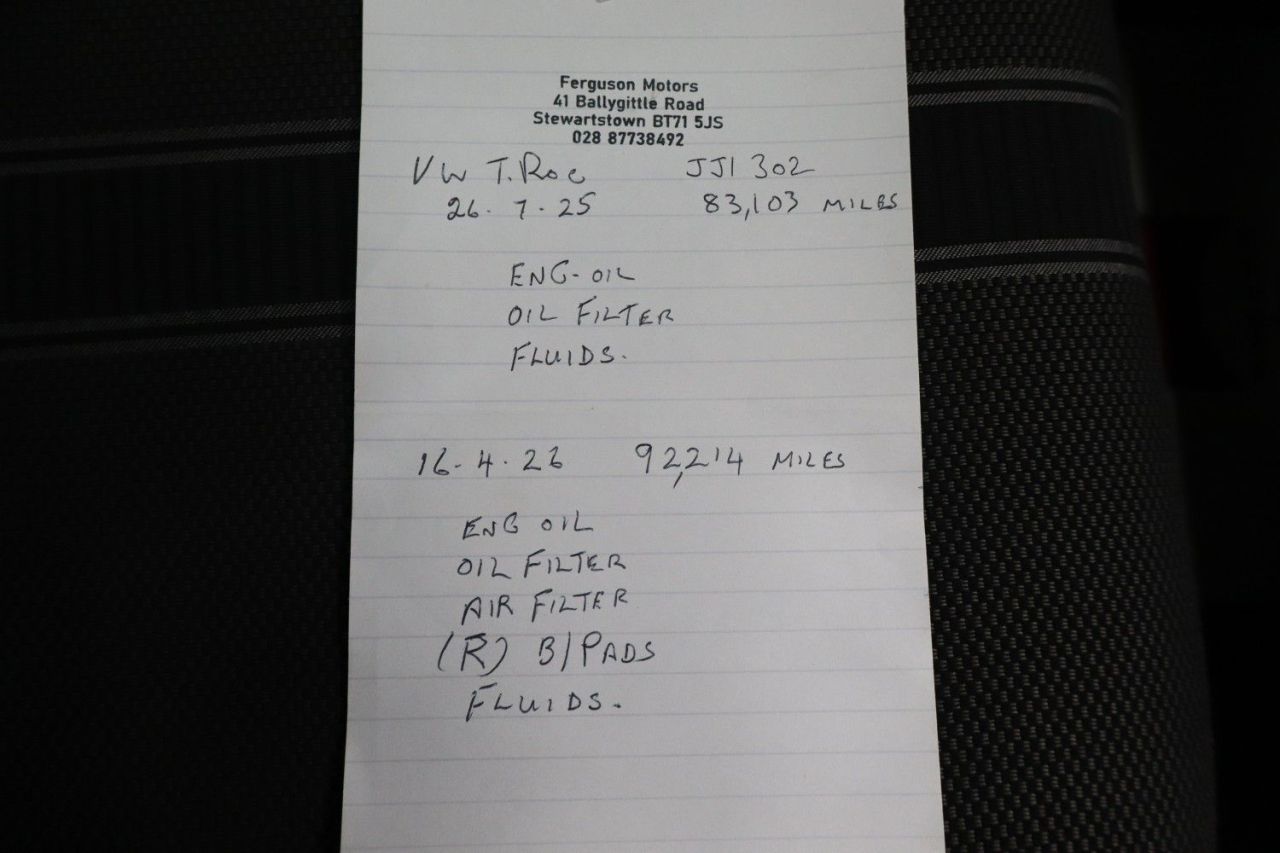 Ferguson Motors
41 Ballygittle Road
Stewartstown BT71 5JS
028 87738492
VW T.Roc JJI 302
26.7.25 83,103 MILES
ENG-OIL
OIL FILTER
FLUIDS.
16-4.26 92,214 MILES
ENG OIL
OIL FILTER
AIR FILTER
(R) B/PADS
FLUIDS.